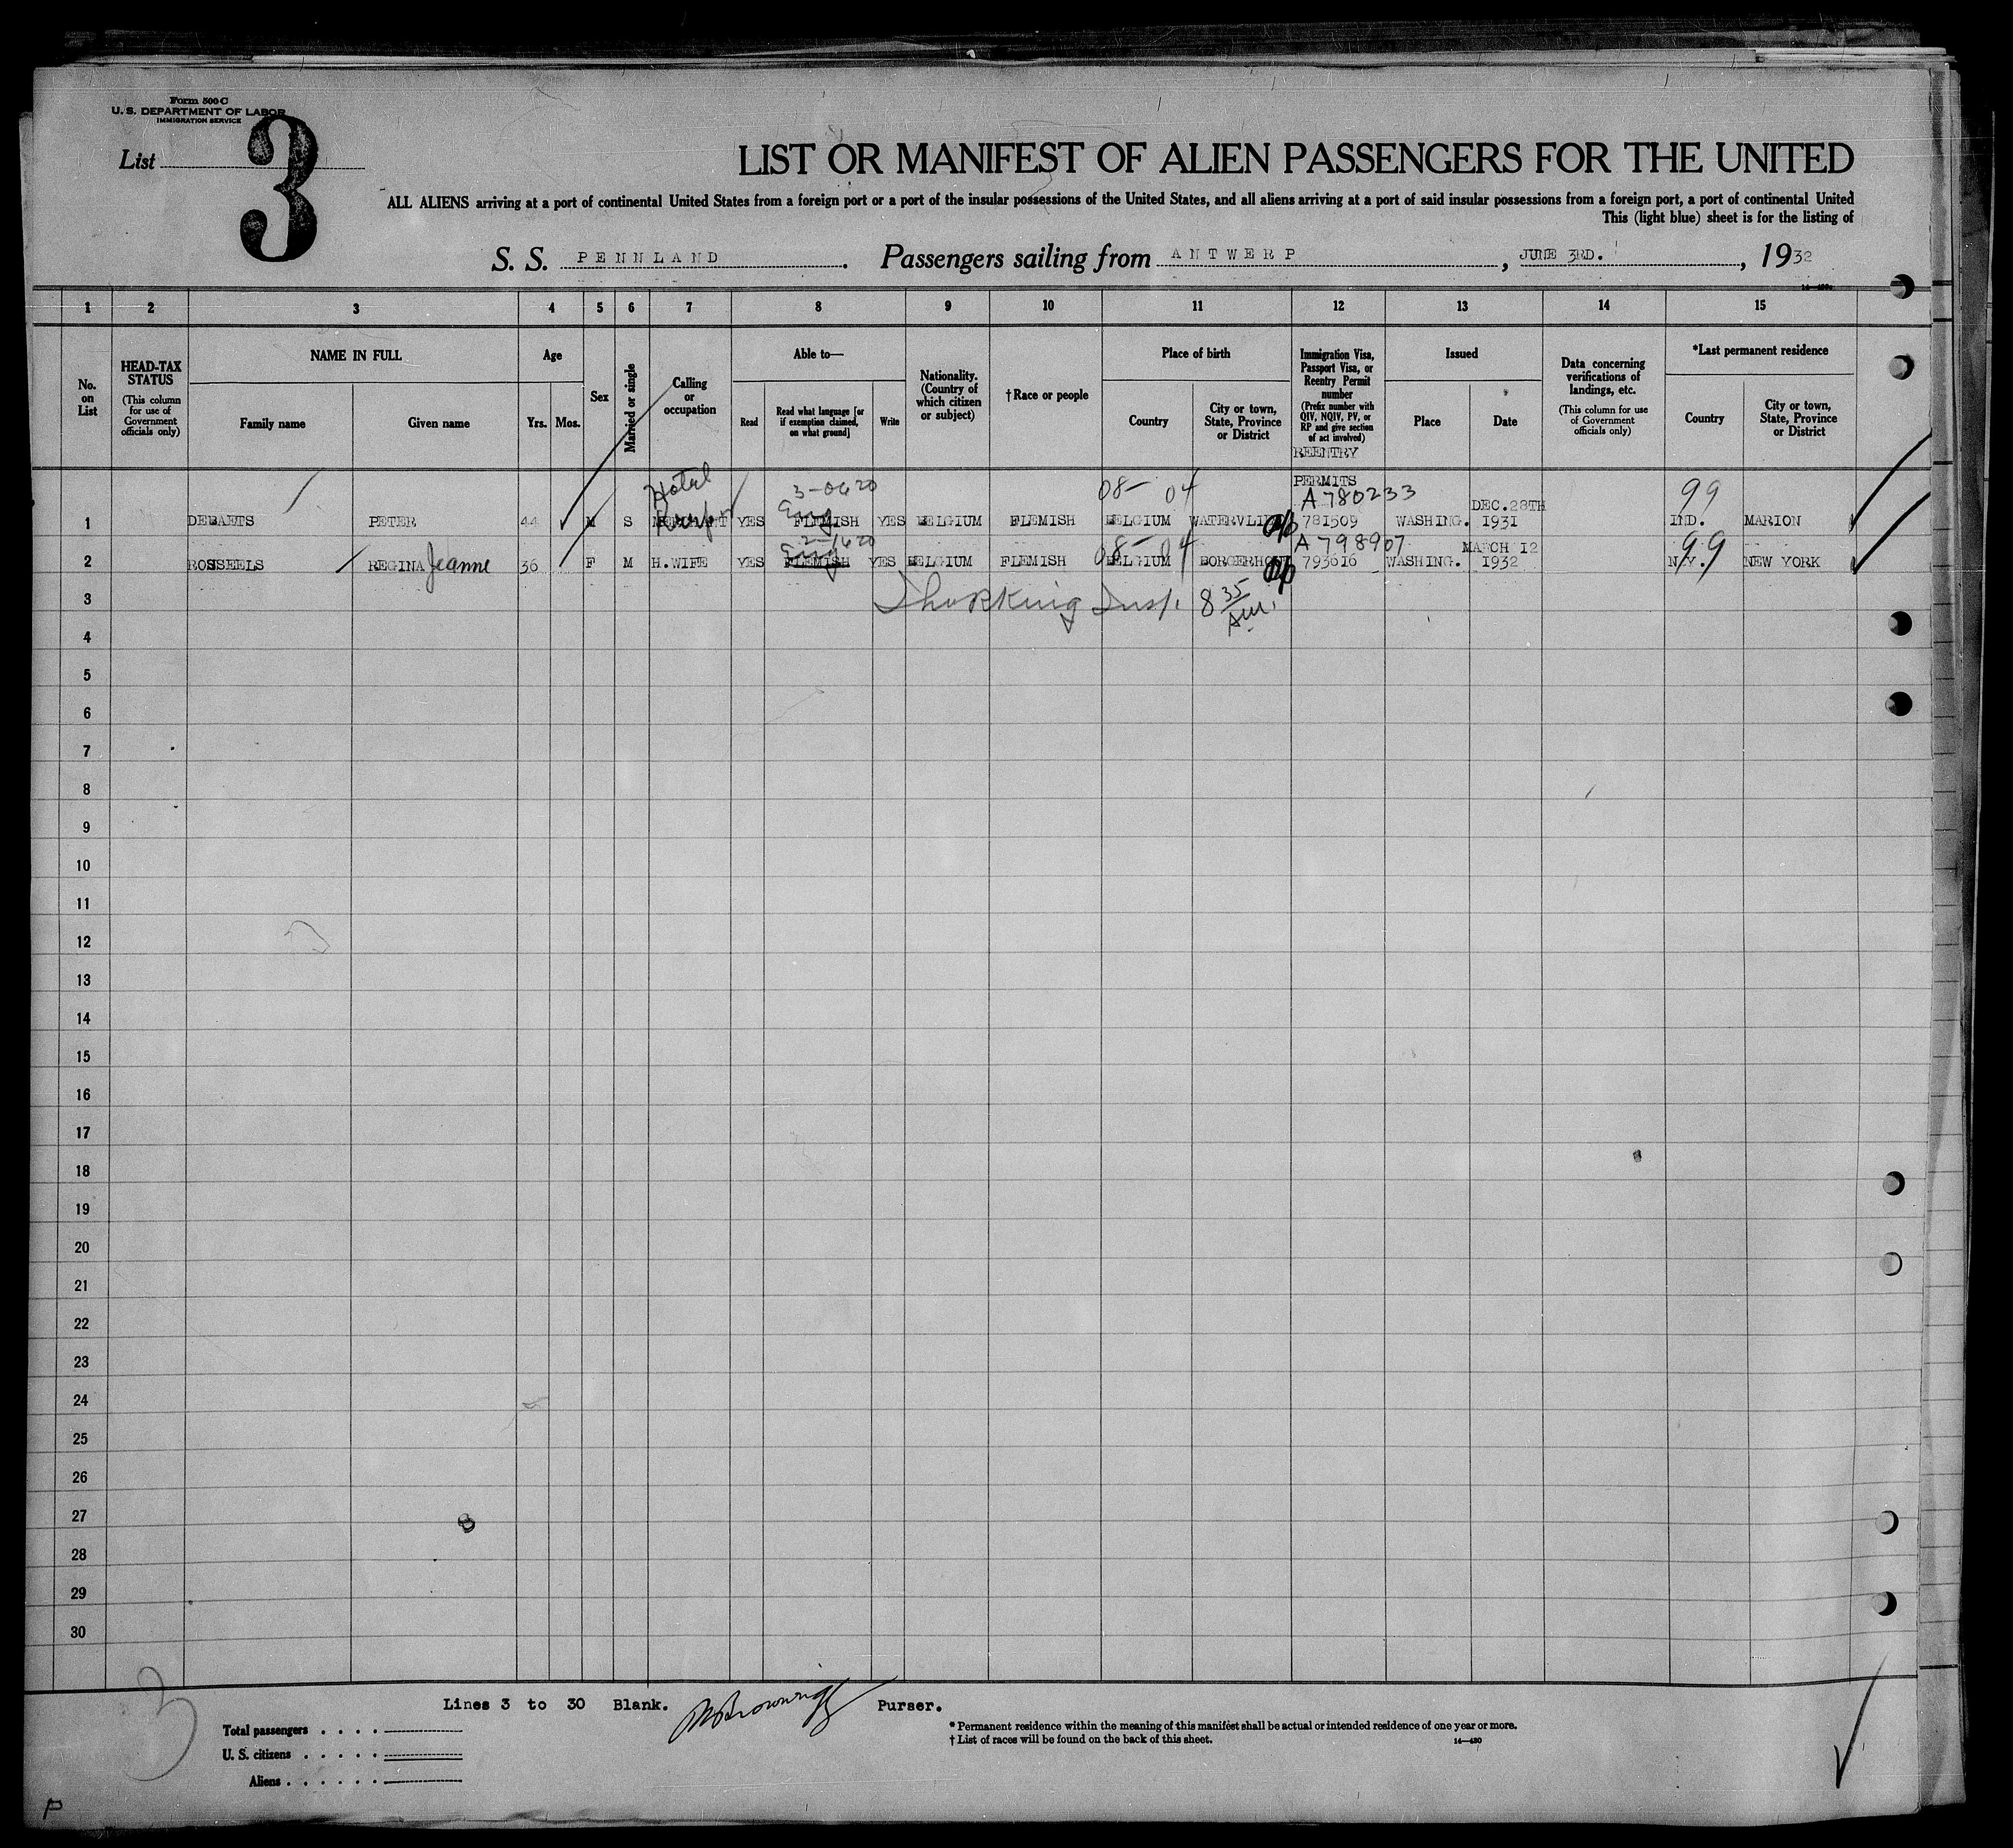 Form 500 C
U. S. DEPARTMENT OF LABOR
IMMIGRATION SERVICE
List
3
LIST OR MANIFEST OF ALIEN PASSENGERS FOR THE UNITED
ALL ALIENS arriving at a port of continental United States from a foreign port or a port of the insular possessions of the United States, and all aliens arriving at a port of said insular possessions from a foreign port, a port of continental United
This (light blue) sheet is for the listing of
S. S. PENNLAND. Passengers sailing from ANTWERP, JUNE 3RD., 1932
1 2 3 4 5 6 7 8 9 10 11 12 13 14 15
No. on List
HEAD-TAX STATUS (This column for use of Government officials only)
NAME IN FULL
Family name Given name
Age
Yrs. Mos.
Sex
Married or single
Calling or occupation
Able to—
Read Read what language [or if exemption claimed, on what ground] Write
Nationality. (Country of which citizen or subject)
†Race or people
Place of birth
Country City or town, State, Province or District
Immigration Visa, Passport Visa, or Reentry Permit number (Prefix number with QIV, NQIV, PV, or RP and give section of act involved)
REENTRY
PERMITS
Issued
Place Date
Data concerning verifications of landings, etc. (This column for use of Government officials only)
*Last permanent residence
Country City or town, State, Province or District
Hotel 3-0620 08- 04 A 780233 DEC.28TH 99
1 DEBAETS PETER 44 M S Eng FLEMISH YES YES BELGIUM FLEMISH BELGIUM 781509 WASHING. 1931 IND. MARION
2-1620 08- 04 A 798907 MARCH 12 99
2 ROSSEELS REGINA Jeanne 36 F M H.WIFE YES Eng FLEMISH YES BELGIUM FLEMISH BELGIUM BORGERHOUT 793616 WASHING. 1932 N.Y. NEW YORK
3 Insp. 8 35 AM.
4
5
6
7
8
9
10
11
12
13
14
15
16
17
18
19
20
21
22
23
24
25
26
27
28
29
30
3
Lines 3 to 30 Blank. Purser.
Total passengers
U. S. citizens
Aliens
* Permanent residence within the meaning of this manifest shall be actual or intended residence of one year or more.
† List of races will be found on the back of this sheet. 14—430
P